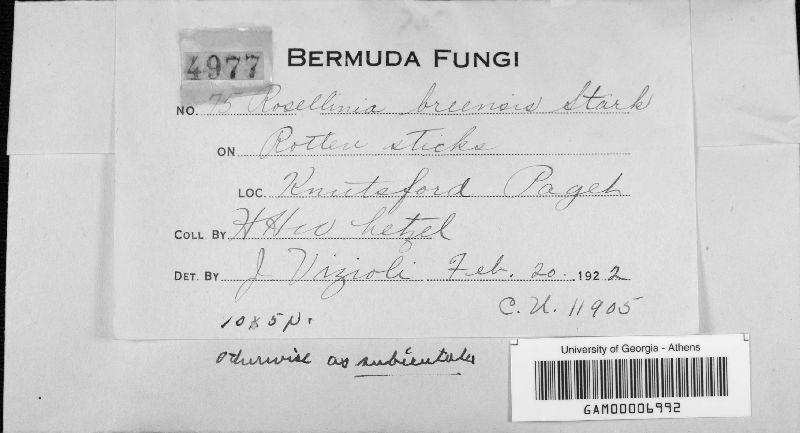 4977
BERMUDA FUNGI
NO. 75 Rosellinia breensis Starb
ON Rotten sticks
LOC Knutsford Paget
COLL BY HHW hetzel
DET. BY J Vizioli Feb. 20. 1922
C.U. 11905
10 x 5 µ.
otherwise as subiculata
University of Georgia - Athens
GAM00006992